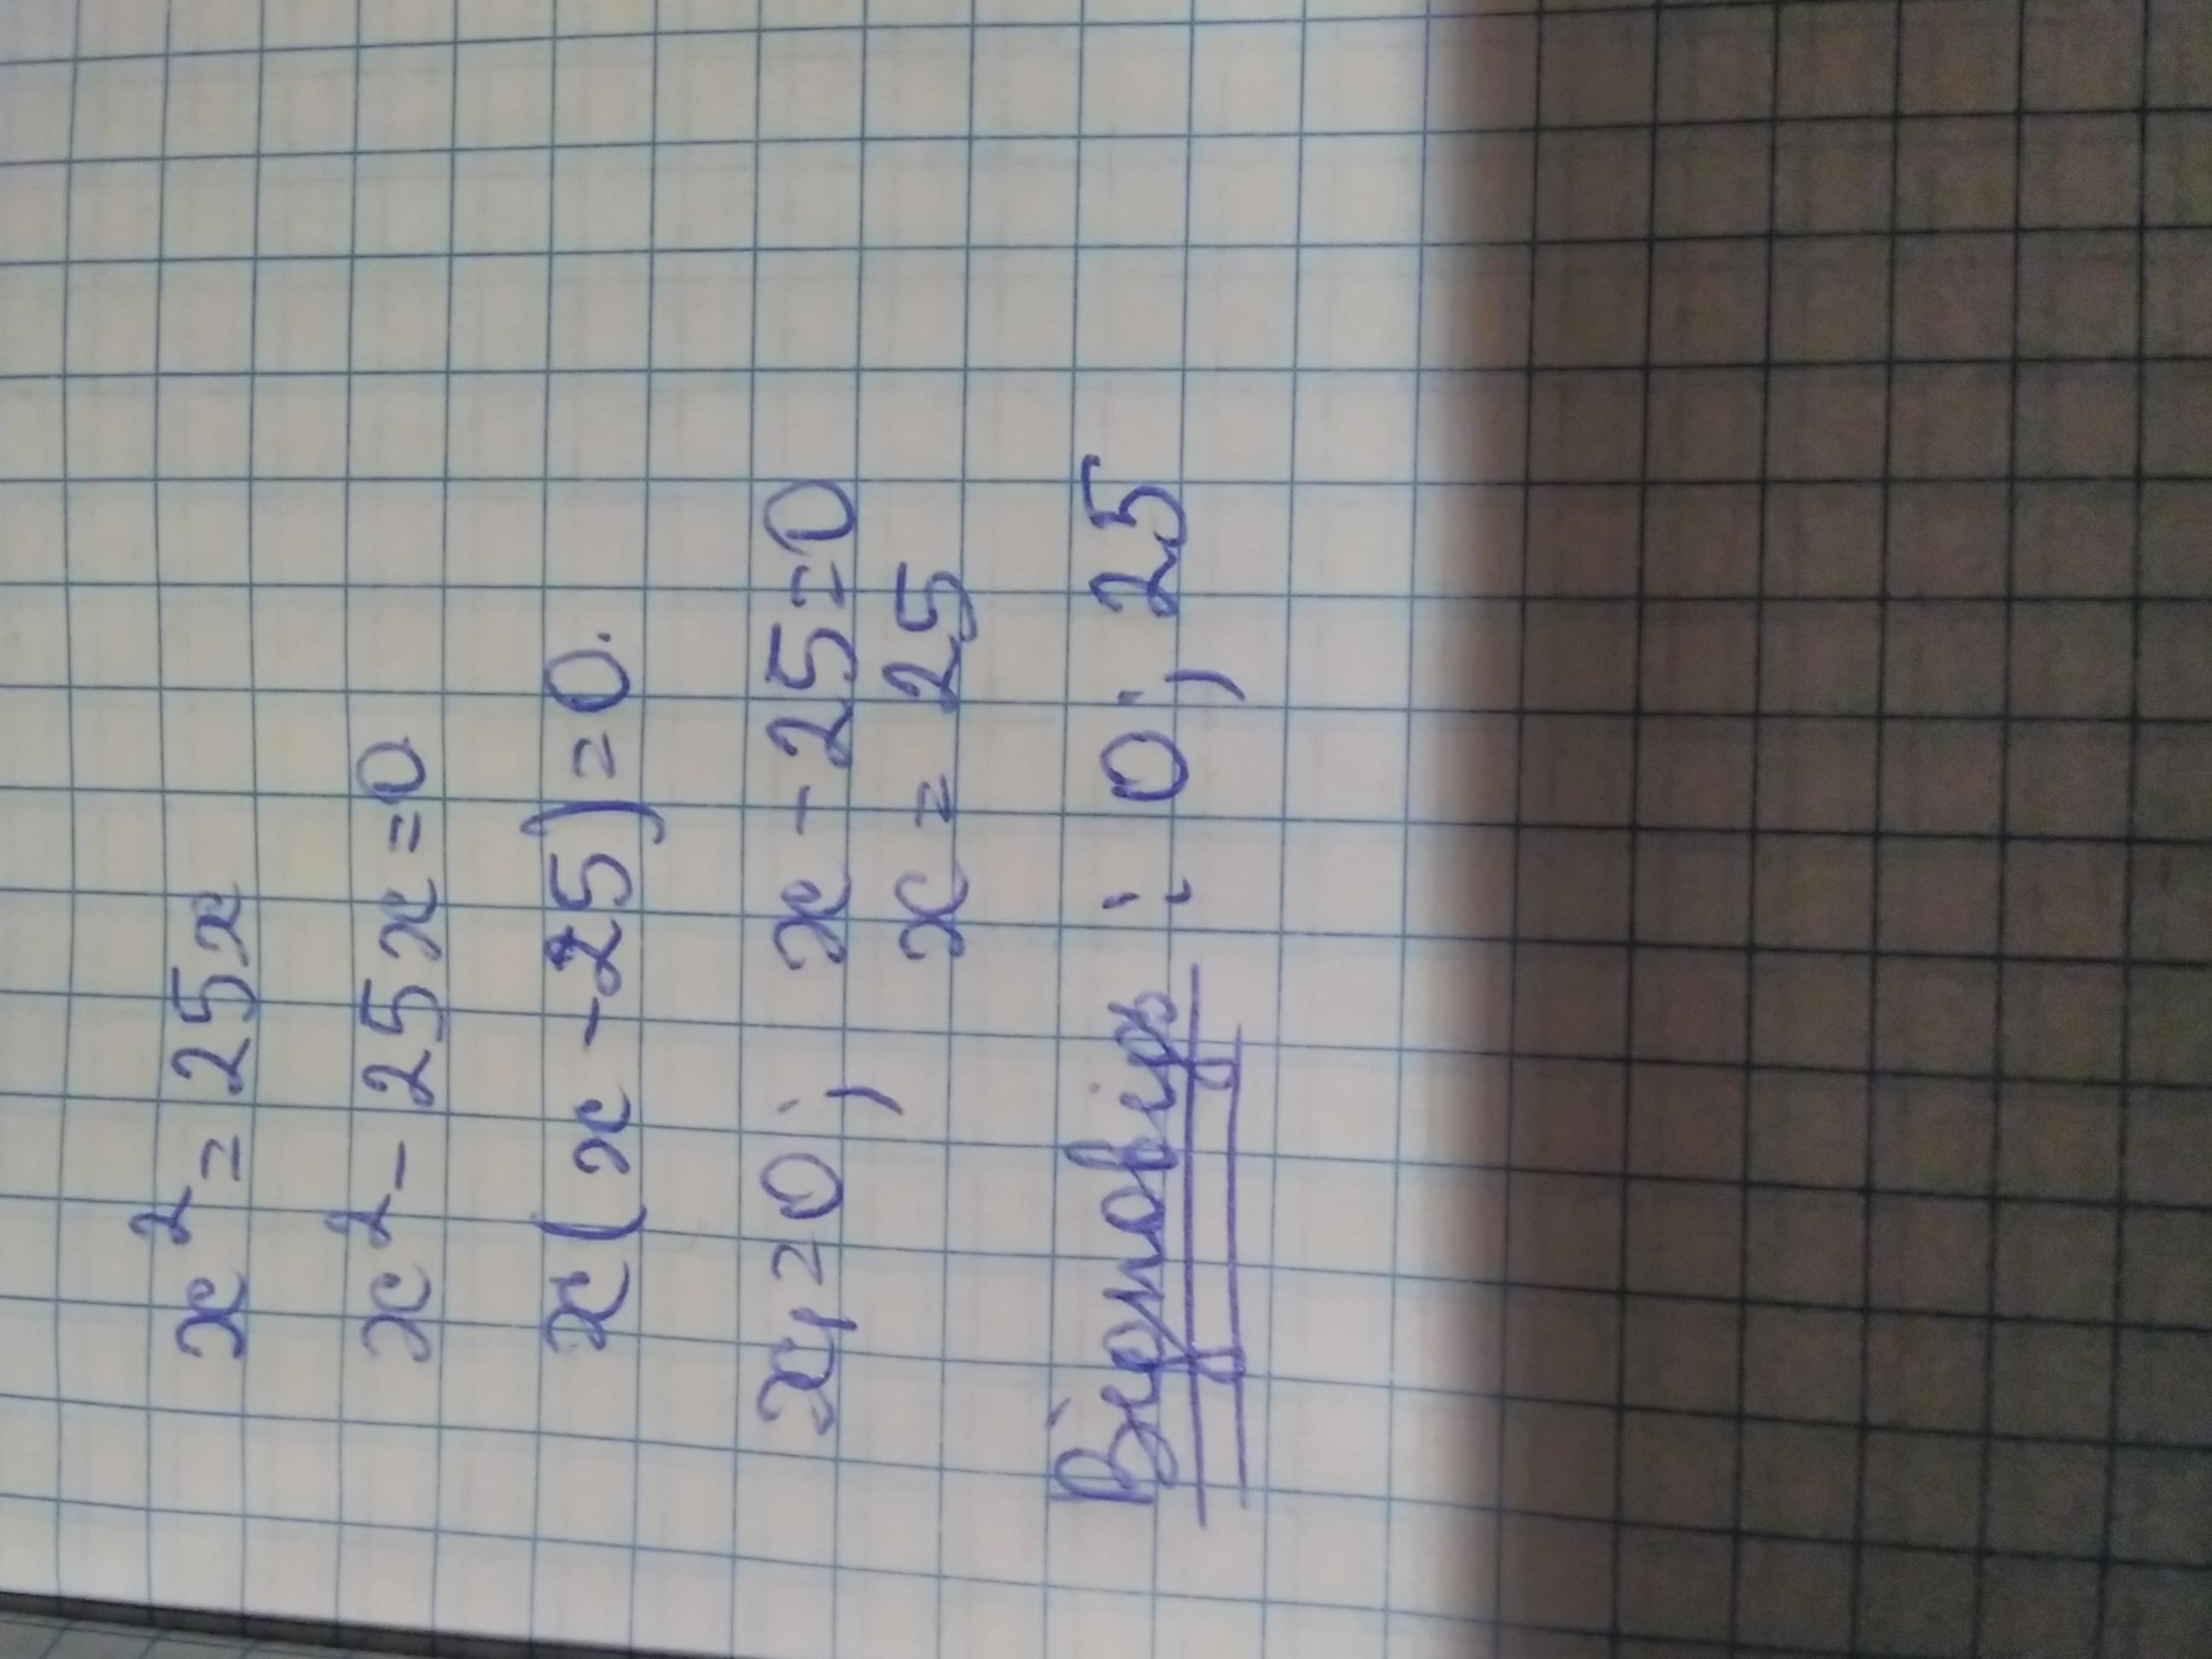 x² = 25x
x² - 25x = 0
x(x - 25) = 0.
x₁ = 0; x - 25 = 0
x = 25
Відповідь: 0; 25